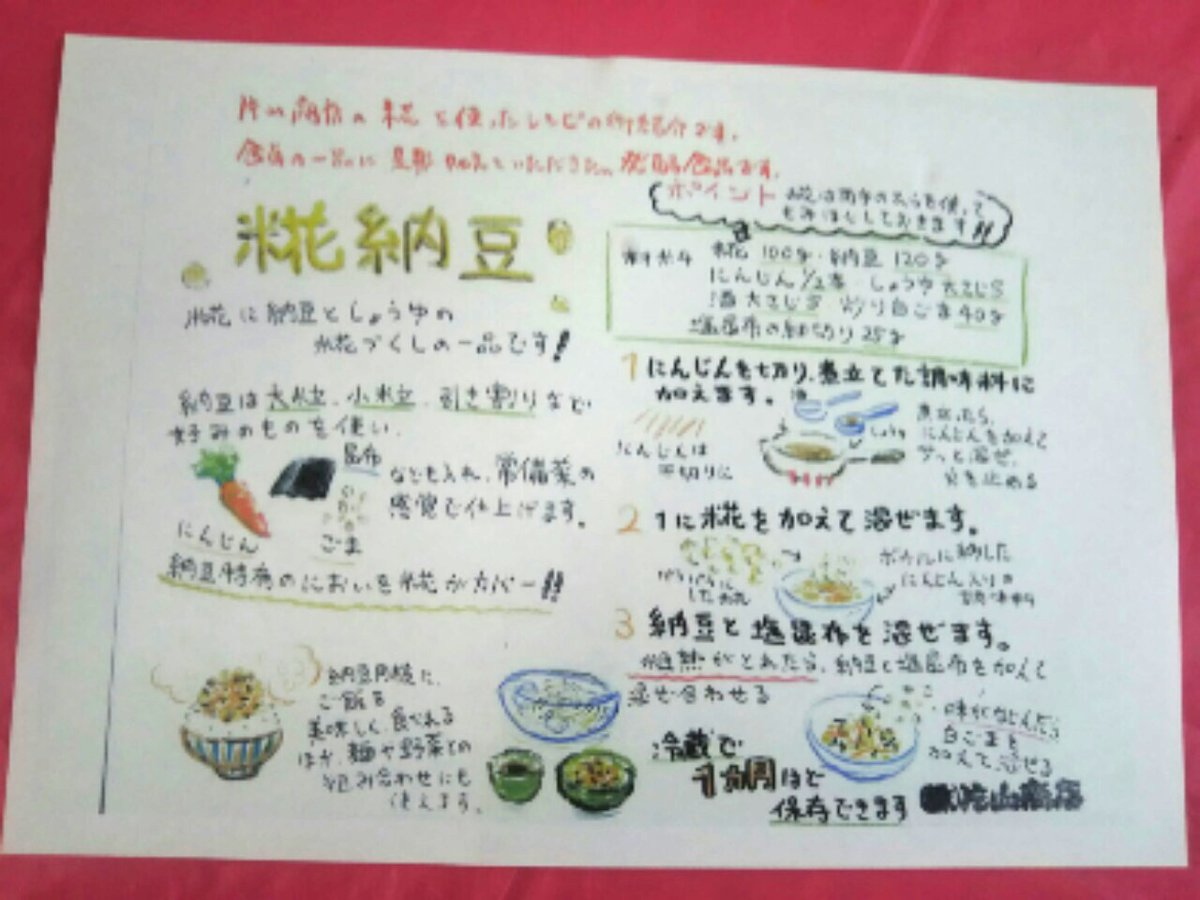 片山商店の糀を使ったレシピの御紹介です。
食卓の一品に是非加えていただきたい発酵食品です。
糀納豆
糀に納豆としょうゆの
糀づくしの一品です!
納豆は大粒、小粒、引き割りなど
好みのものを使い、
にんじん
昆布
ごま
なども入れ、常備菜の
感覚で仕上げます。
納豆特有のにおいを糀がカバー!!
納豆同様に、
ご飯を
美味しく食べれる
ほか、麺や野菜との
組み合わせにも
使えます。
ポイント
糀は両手の平を使って
もみほぐしておきます!!
材料
糀 100g・納豆 120g
にんじん1/2本・しょうゆ 大さじ5
酒 大さじ5 炒り白ごま40g
塩昆布の細切り 25g
1 にんじんを切り、煮立てた調味料に
加えます。
酒
しょうゆ
にんじんは
千切りに
煮立ったら、
にんじんを加えて
サッと混ぜ、
火を止める
2 1に糀を加えて混ぜます。
ばらばらに
した糀
ボウルに移した
にんじん入りの
調味料
3 納豆と塩昆布を混ぜます。
粗熱がとれたら、納豆と塩昆布を加えて
混ぜ合わせる
味がなじんだら
白ごまを
加えて混ぜる
冷蔵で
1カ月ほど
保存できます
片山商店